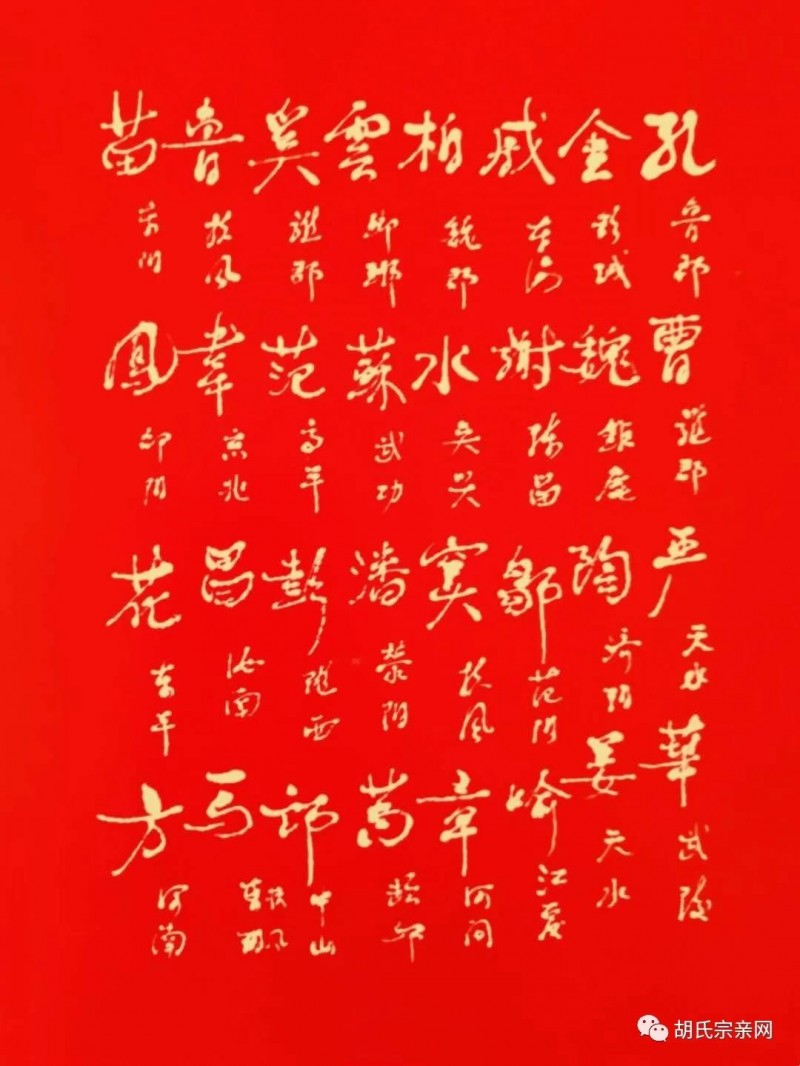 孔 鲁郡 曹 谯郡 严 天水 華 武陵
金 彭城 魏 鉅鹿 陶 济阳 姜 天水
戚 东海 謝 陈留 鄒 范阳 喻 江夏
柏 魏郡 水 吴兴 窦 扶风 章 河间
雲 琅琊 蘇 武功 潘 荥阳 葛 顿丘
奚 谯郡 范 高平 彭 陇西 郎 中山
魯 扶风 韋 京兆 昌 汝南 马 扶风
苗 东阳 鳳 邰阳 花 东平 方 河南
胡氏宗亲网